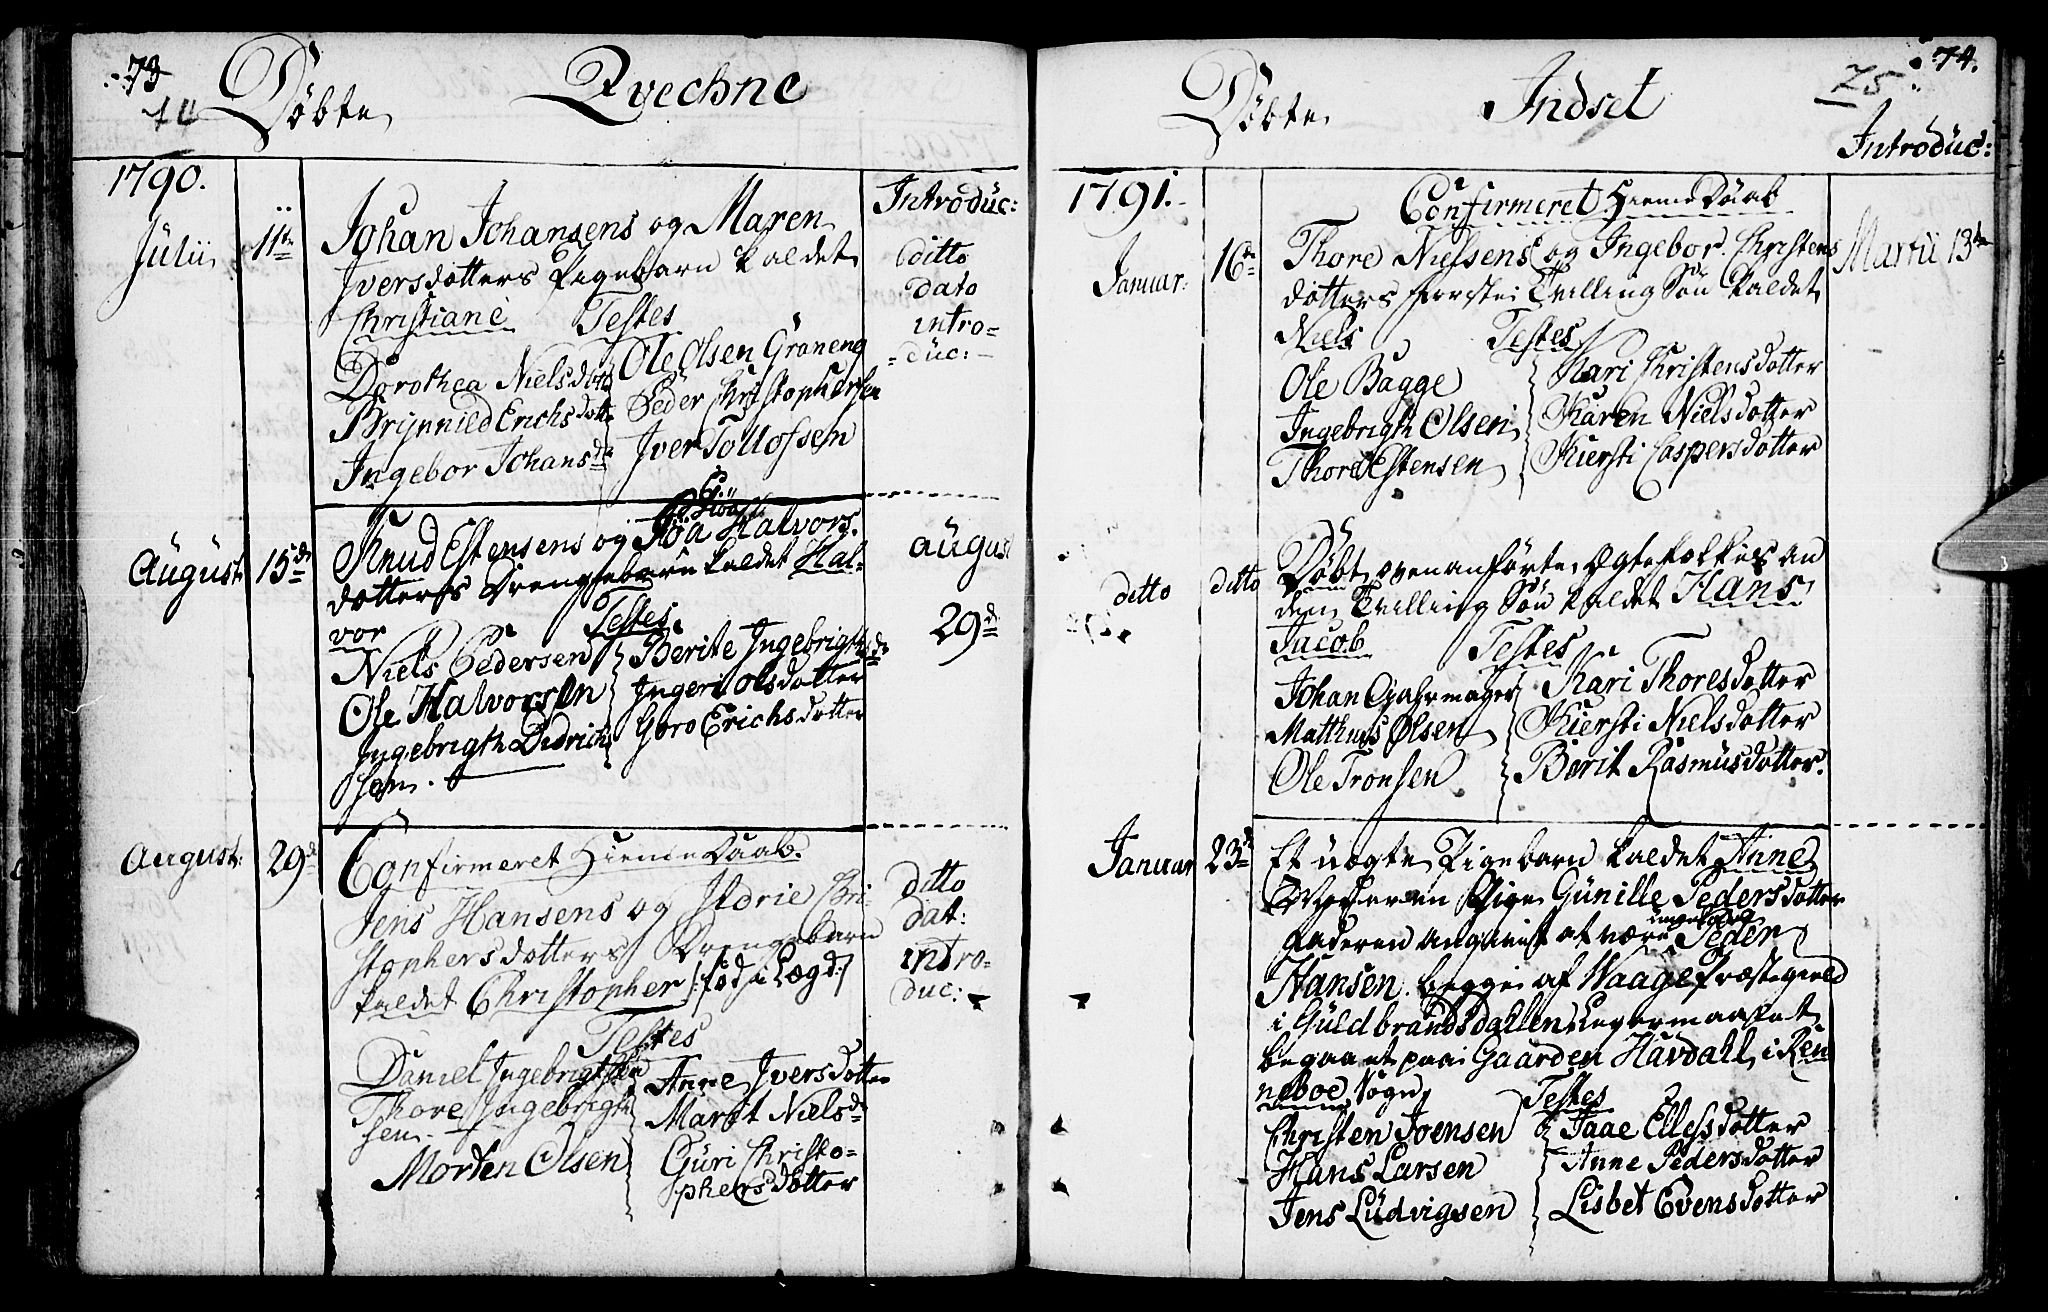 73
74
Döbte Qvechne
1790.
Julii 11te
Johan Johansens og Maren
Iversdotters Pigebarn kaldet
Christiane Testes
Dorothea Nielsdott
Brynnild Erichsdotte
Ingebor Johansdr
Ole Olsen Graneng
Peder Christophersen
Iver Tollofsen
Introduc:
ditto
dato
intro=
duc:
August 15de
Knud Estensens og Halvors.
dotters Drengebarn kaldet Hal-
vor Testes
Niels Pedersen
Ole Halvorsen
Ingebrigth Didrich
sen.
Berite Ingebrigthsdr
Ingeri Olsdotter
Goro Erichsdotter
august
29de
August: 29de
Confirmeret Hieme Daab.
Jens Hansens og Chri-
stophersdotters Drengebarn
kaldet Christopher /:fød i Lægd:/
Testes
Daniel Ingebrigthsen
Thore Ingebrigth
sen.
Morten Olsen
Anne Iversdotter
Marit Nielsdr
Guri Christo=
phersdotter
ditto
dat:
intro-
duc:
74.
75.
Döbte Indset
Introduc:
1791.
Januar: 16de
Confirmeret Hieme Daab
Thore Nielsens og Ingebor Christens
dotters förste Tvilling Sön kaldet
Niels Testes
Ole Bagge
Ingebrigth Olsen
Thore Estensen
Kari Christensdotter
Karen Nielsdotter
Kiersti Caspersdotter
Martii 13de
ditto ditto
Döbt ovenanförte Ægtefolkes an
den Tvilling Sön kaldet Hans
Jacob Testes
Johan Gjahrmager
Matthias Olsen
Ole Tronsen
Kari Thoresdotter
Kiersti Nielsdotter
Berit Rasmusdotter.
Januar 23de
Et uægte Pigebarn kaldet Anne
Moderen Pige Gunille Pedersdotter
Faderen angivet at være ungekarl Peder
Hansen begge af Waage Præstegield
i Guldbrandsdahlen Legermaalet
begaaet paa Gaarden Havdahl i Ren
neboe Sogn Testes
Christen Joensen
Hans Larsen
Jens Ludvigsen
Faae Ellefsdotter
Anne Pedersdotter
Lisbet Evensdotter